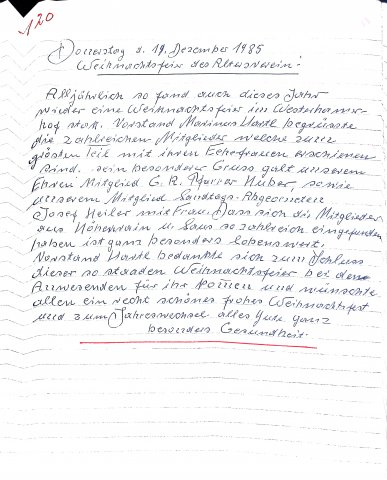 120
Donnerstag d. 19. Dezember 1985
Weihnachtsfeier des Altersverein.
Alljährlich so fand auch dieses Jahr
wieder eine Weihnachtsfeier im Westerhamer-
hof statt. Vorstand Marinus Hartl begrüsste
die zahlreichen Mitglieder welche zum
grösten Teil mit ihren Eehefrauen erschienen
sind. sein besonderer Gruss galt unserem
Ehren Mitglied G. R. Pfarrer Huber, sowie
unserem Mitglied Landtags-Abgeorneten
Josef Heiler mit Frau. Dass sich die Mitglieder
aus Höhenrain u. Laus so zahlreich eingefunden
haben ist ganz besonders lobenswert.
Vorstand Hartl bedankte sich zum Schluss
dieser so staaden Weihnachtsfeier bei den
Anwesenden für ihr Komen und wünschte
allen ein recht schönes frohes Weihnachtsfest
und zum Jahreswechsel alles Gute ganz
besonders Gesundheit.